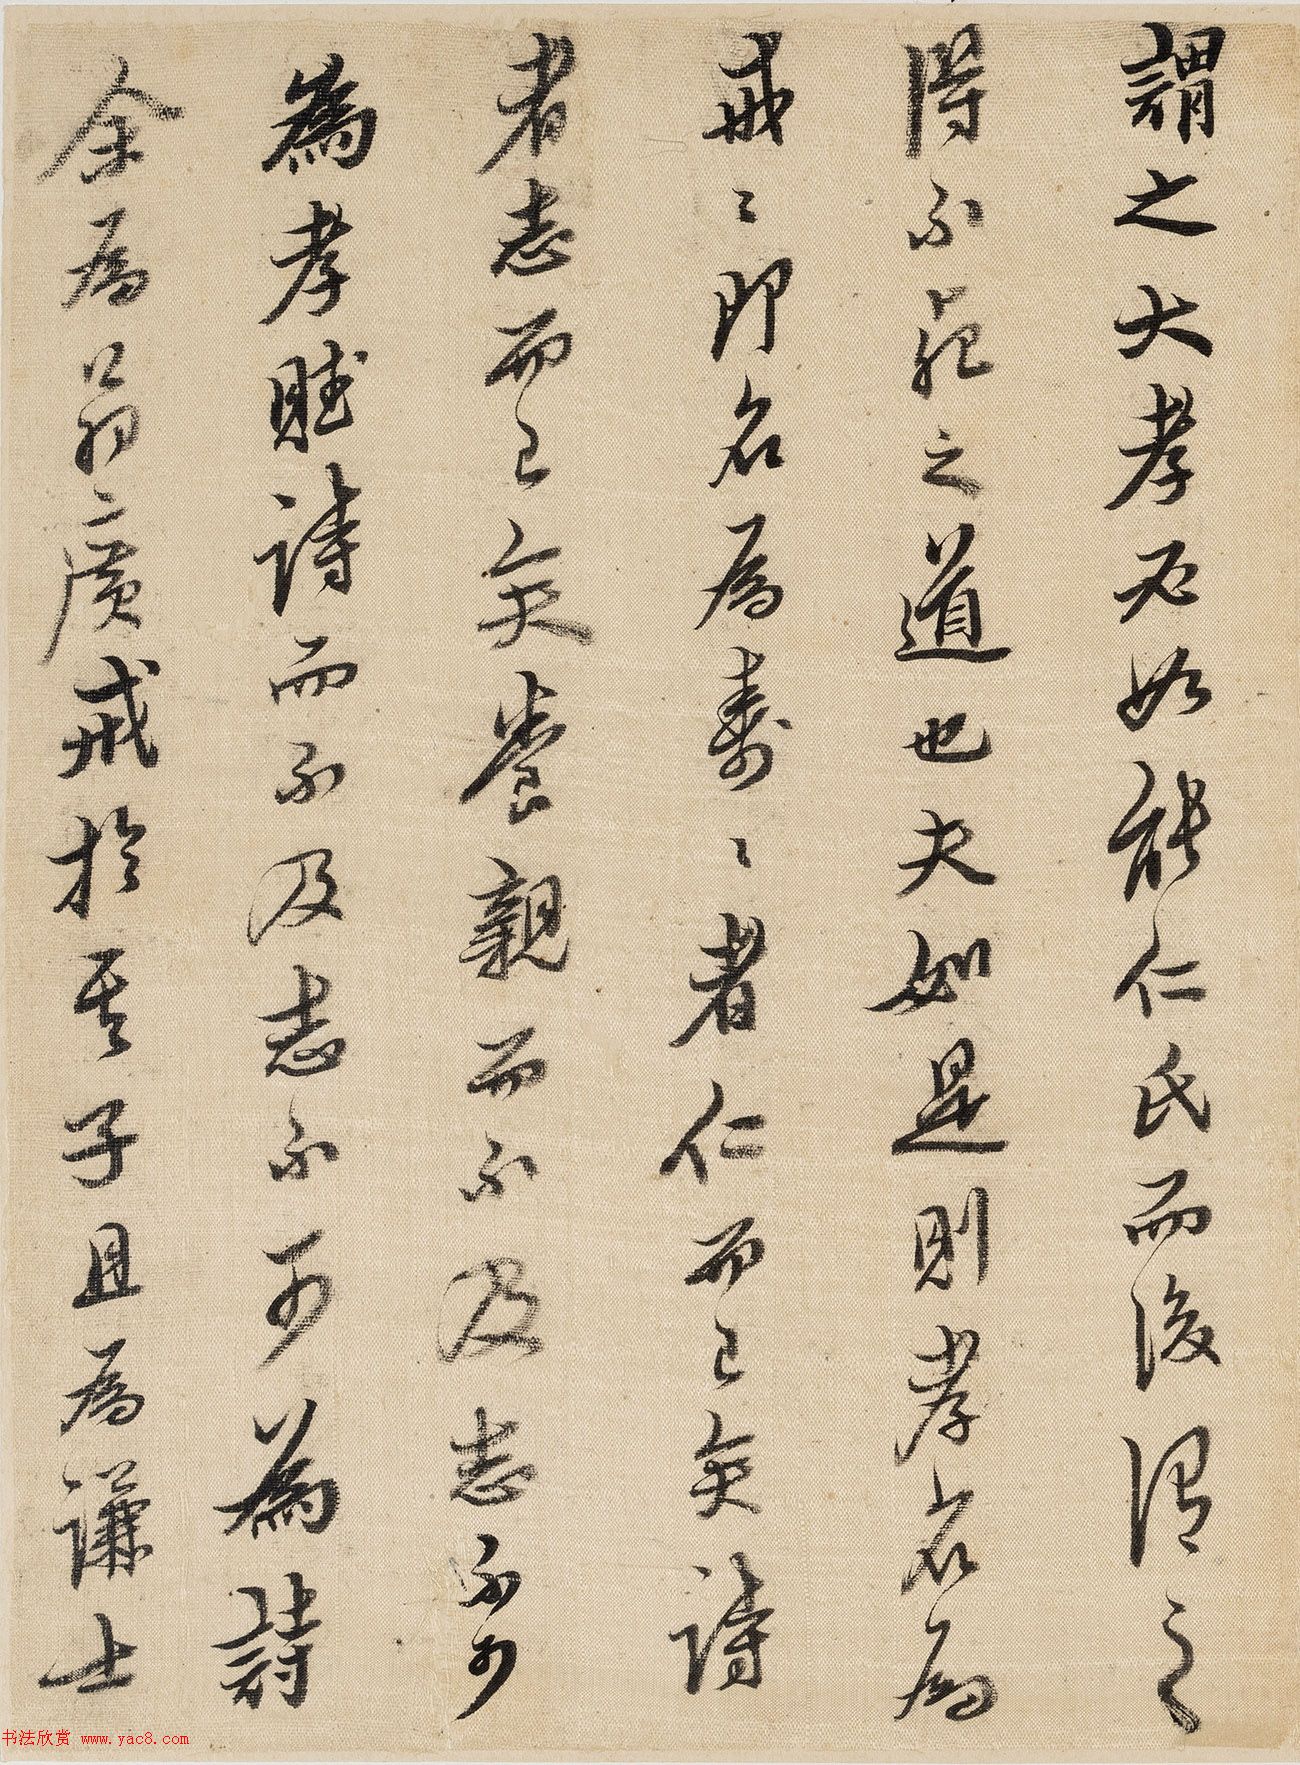 謂之大孝必如能仁氏而後謂之
得不死之道也夫如是則孝名為
戒〻即名為壽〻者仁而已矣詩
者志而已矣養親而不及志不可
為孝賦詩而不及志不可為詩
余為翁廣戒於其子且為謙士
书法欣赏 www.yac8.com